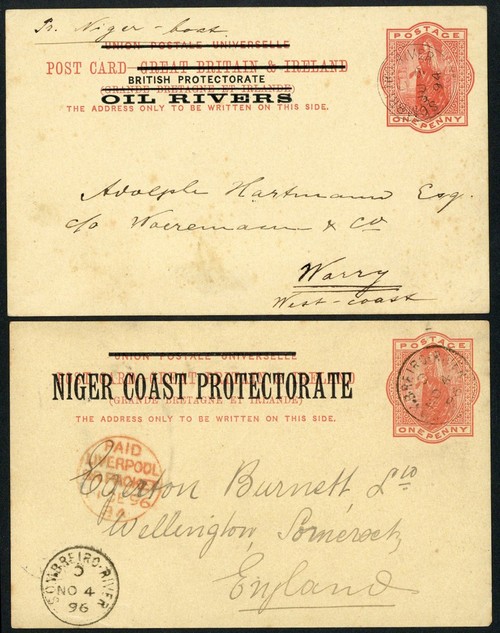 Pr. Niger-boat
UNION POSTALE UNIVERSELLE
POST CARD-GREAT BRITAIN & IRELAND
BRITISH PROTECTORATE
(GRANDE BRETAGNE ET IRLANDE)
OIL RIVERS
THE ADDRESS ONLY TO BE WRITTEN ON THIS SIDE.
POSTAGE
ONE PENNY
Adolphe Hartmann Esq.
c/o Woermann & Co
Warry
West-coast
UNION POSTALE UNIVERSELLE
NIGER COAST PROTECTORATE
(GRANDE BRETAGNE ET IRLANDE)
THE ADDRESS ONLY TO BE WRITTEN ON THIS SIDE.
POSTAGE
ONE PENNY
PAID
LIVERPOOL
BR PACKET
DE 96
3A
Egerton Burnett, Ltd
Wellington, Somerset,
England
SOMBREIRO-RIVER
C
NO 4
96